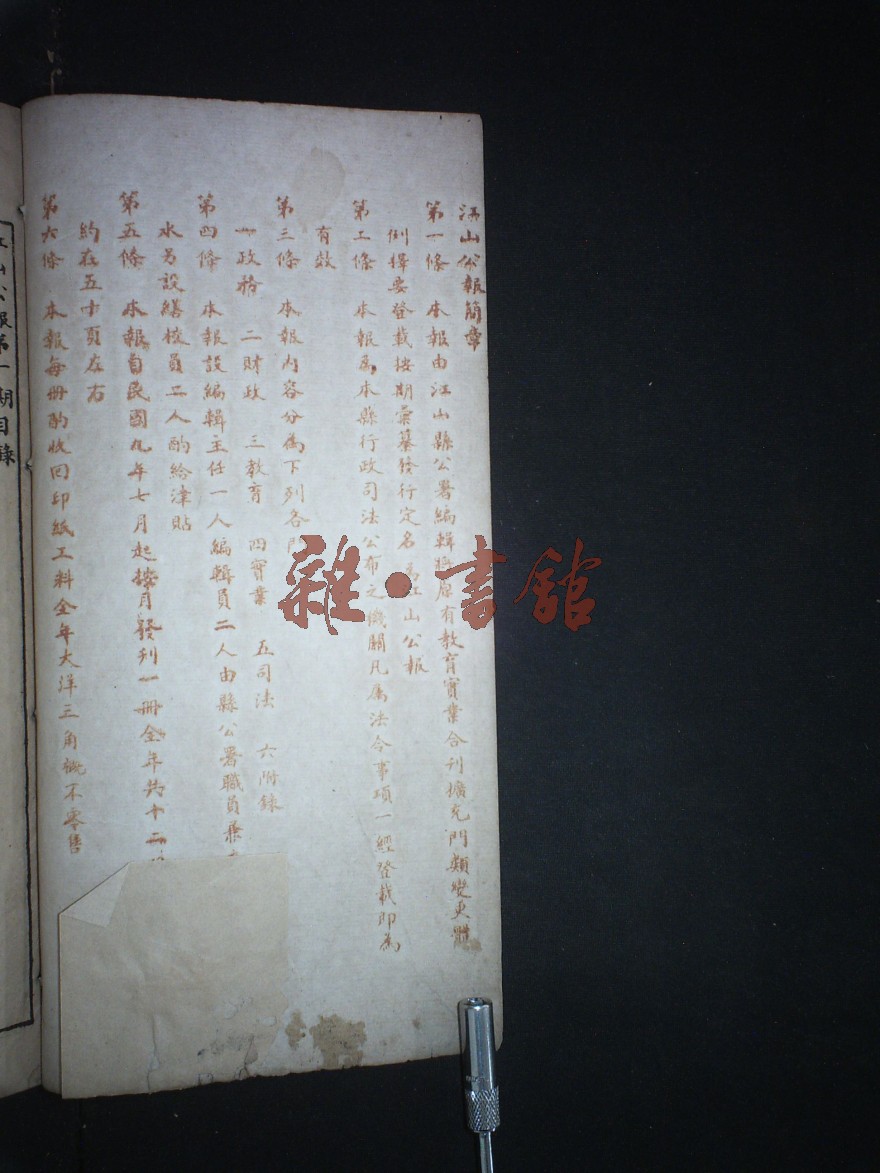 江山公報簡章
第一條　本報由江山縣公署編輯將原有教育實業合刊擴充門類變更體
例擇要登載按期彙纂發行定名為江山公報
第二條　本報為本縣行政司法公布之機關凡屬法令事項一經登載即為
有效
第三條　本報內容分為下列各門
一政務　二財政　三教育　四實業　五司法　六附錄
第四條　本報設編輯主任一人編輯員二人由縣公署職員兼
水另設繕校員二人酌給津貼
第五條　本報自民國九年七月起按月發刊一冊全年共十二
約在五十頁左右
第六條　本報每冊酌收回印紙工料全年大洋三角概不零售
江山公報第一期目錄
雜·書館